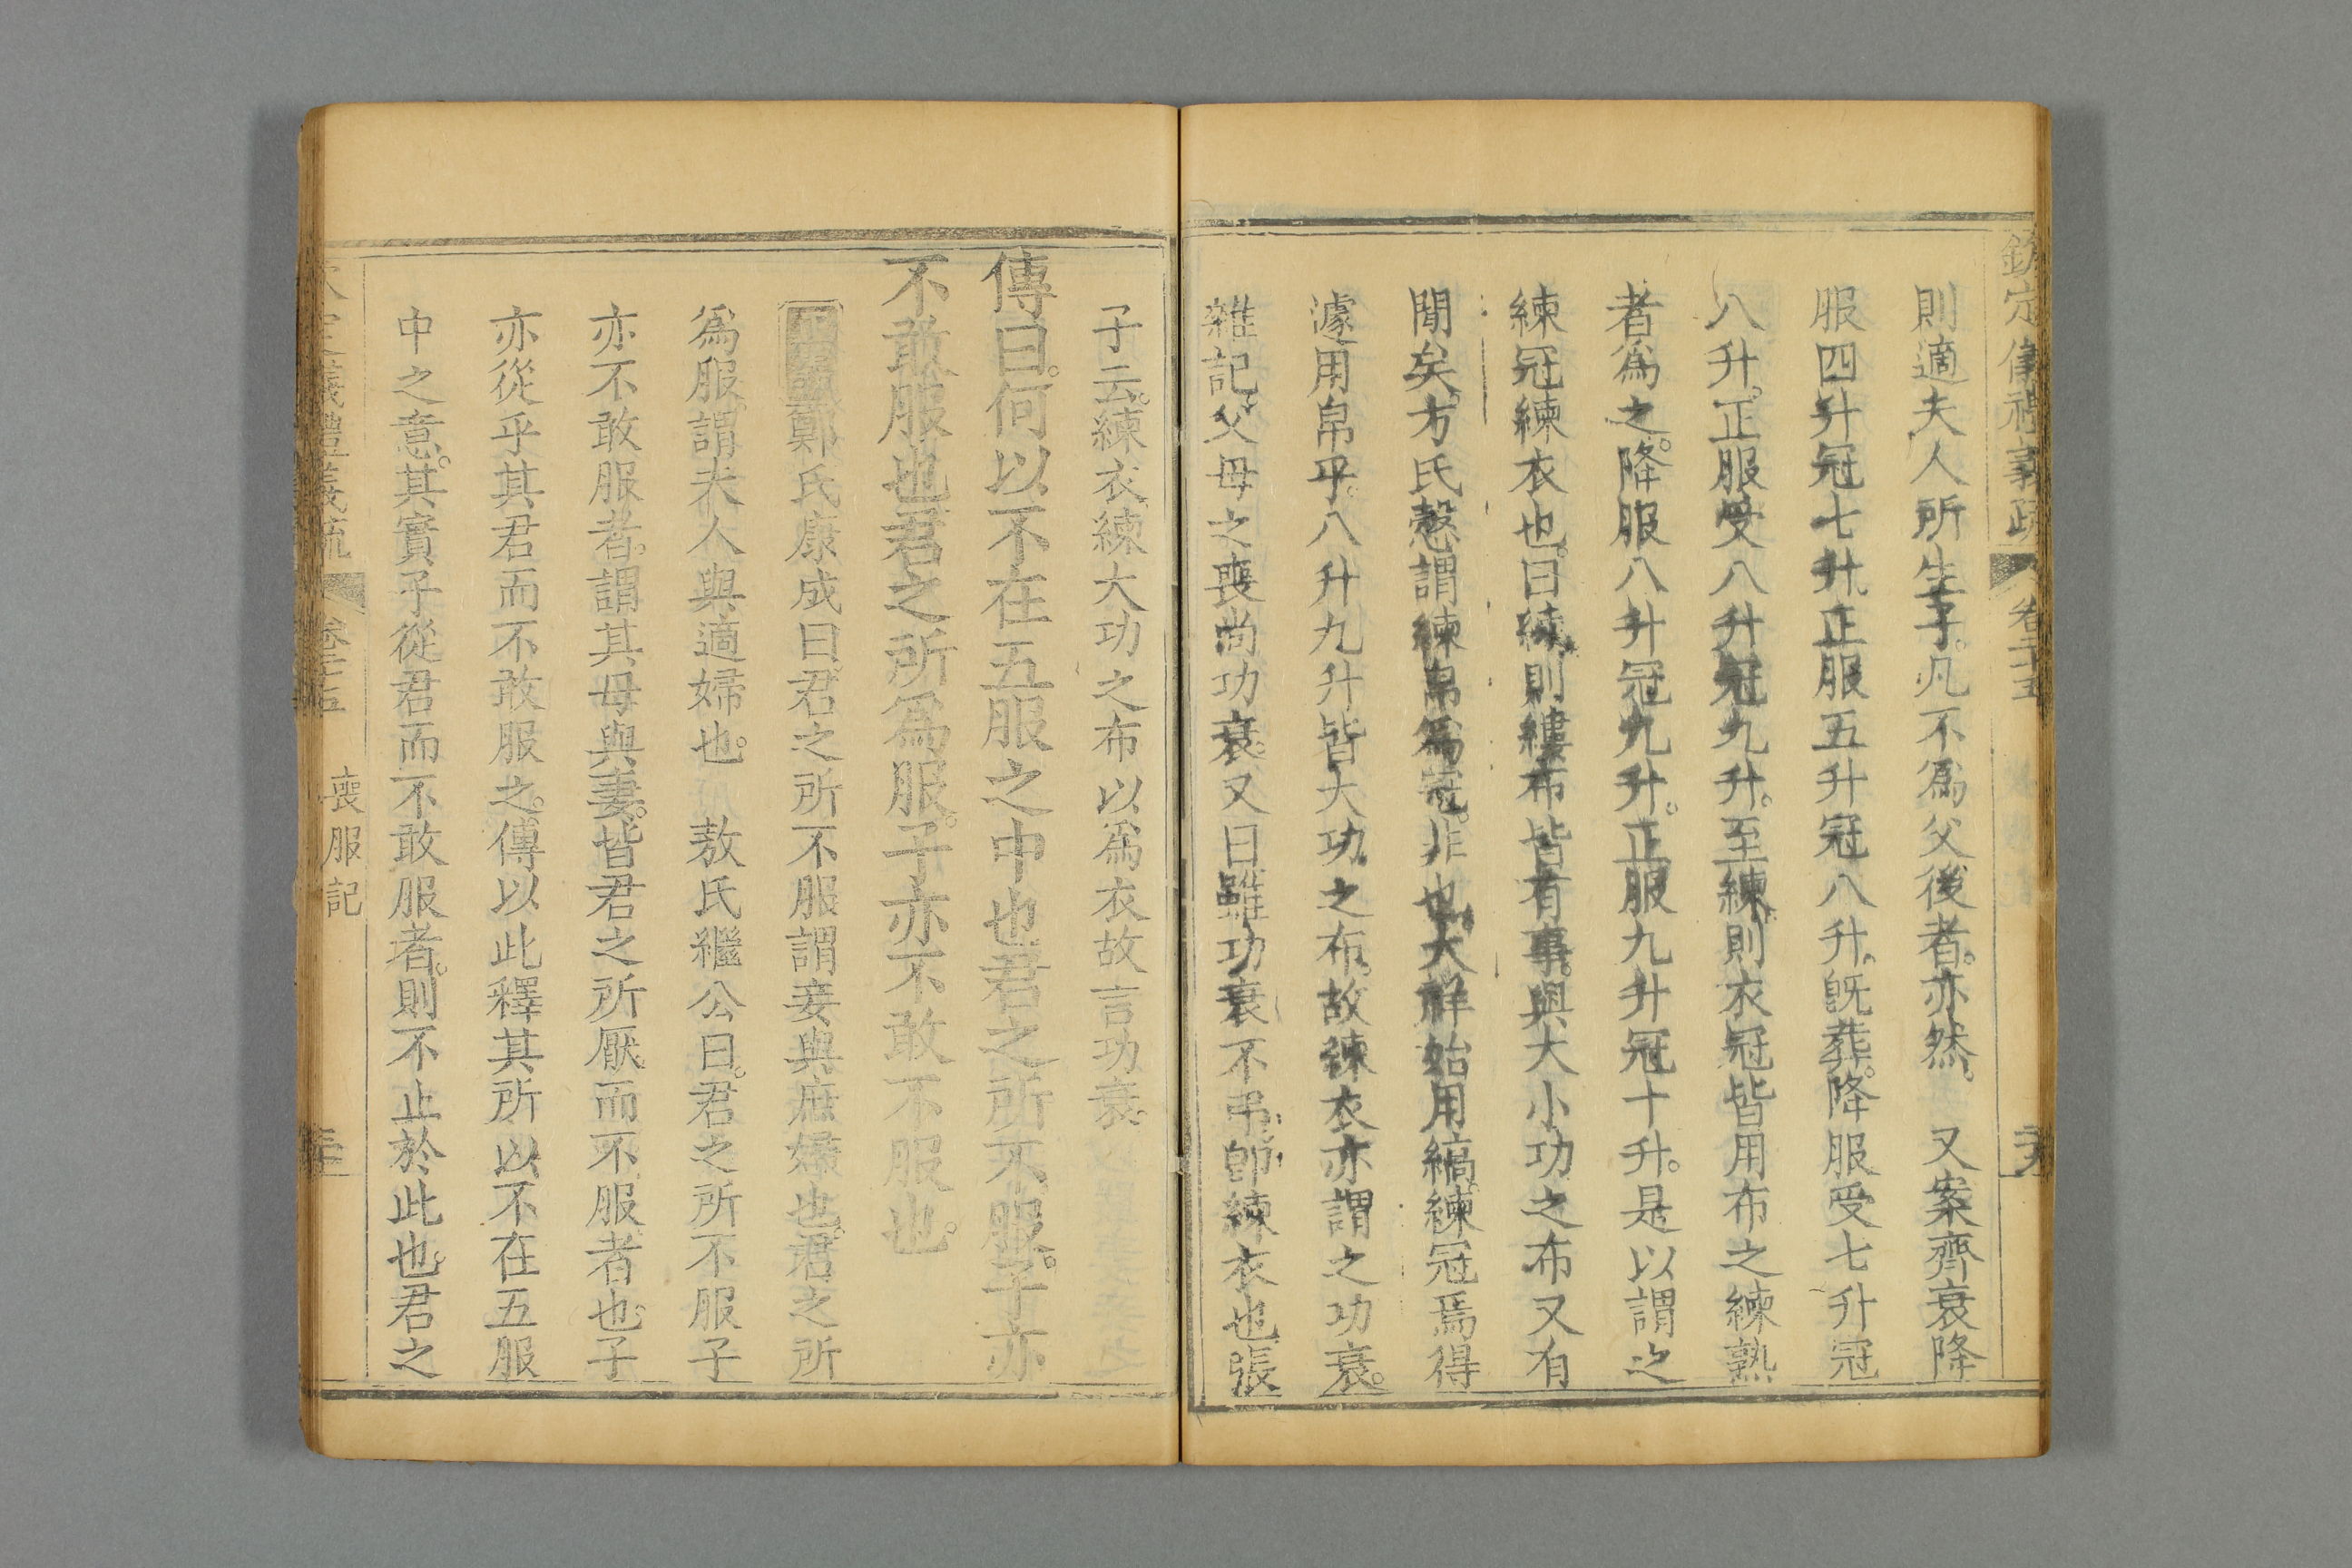 欽定儀禮義疏 卷二十五
則適夫人所生子。凡不爲父後者。亦然。 又案齊衰降
服四升冠七升。正服五升冠八升。旣葬。降服受七升冠
八升。正服受八升冠九升。至練。則衣冠皆用布之練熟
者爲之。降服八升冠九升。正服九升冠十升。是以謂之
練冠練衣也。曰練。則縷布皆有事。與大小功之布又有
閒矣。方氏慤謂練帛爲冠。非也。大祥始用縞。練冠焉得
遽用帛乎。八升九升皆大功之布。故練衣亦謂之功衰。
雜記。父母之喪尚功衰。又曰雖功衰不弔。卽練衣也。張
子云。練衣練大功之布以爲衣。故言功衰。
傳曰。何以不在五服之中也。君之所不服。子亦
不敢服也。君之所爲服。子亦不敢不服也。
鄭氏康成曰。君之所不服。謂妾與庶婦也。君之所
爲服。謂夫人與適婦也。 敖氏繼公曰。君之所不服。子
亦不敢服者。謂其母與妻。皆君之所厭而不服者也。子
亦從乎其君而不敢服之。傳以此釋其所以不在五服
中之意。其實子從君而不敢服者。則不止於此也。君之
欽定儀禮義疏 卷二十五 喪服記